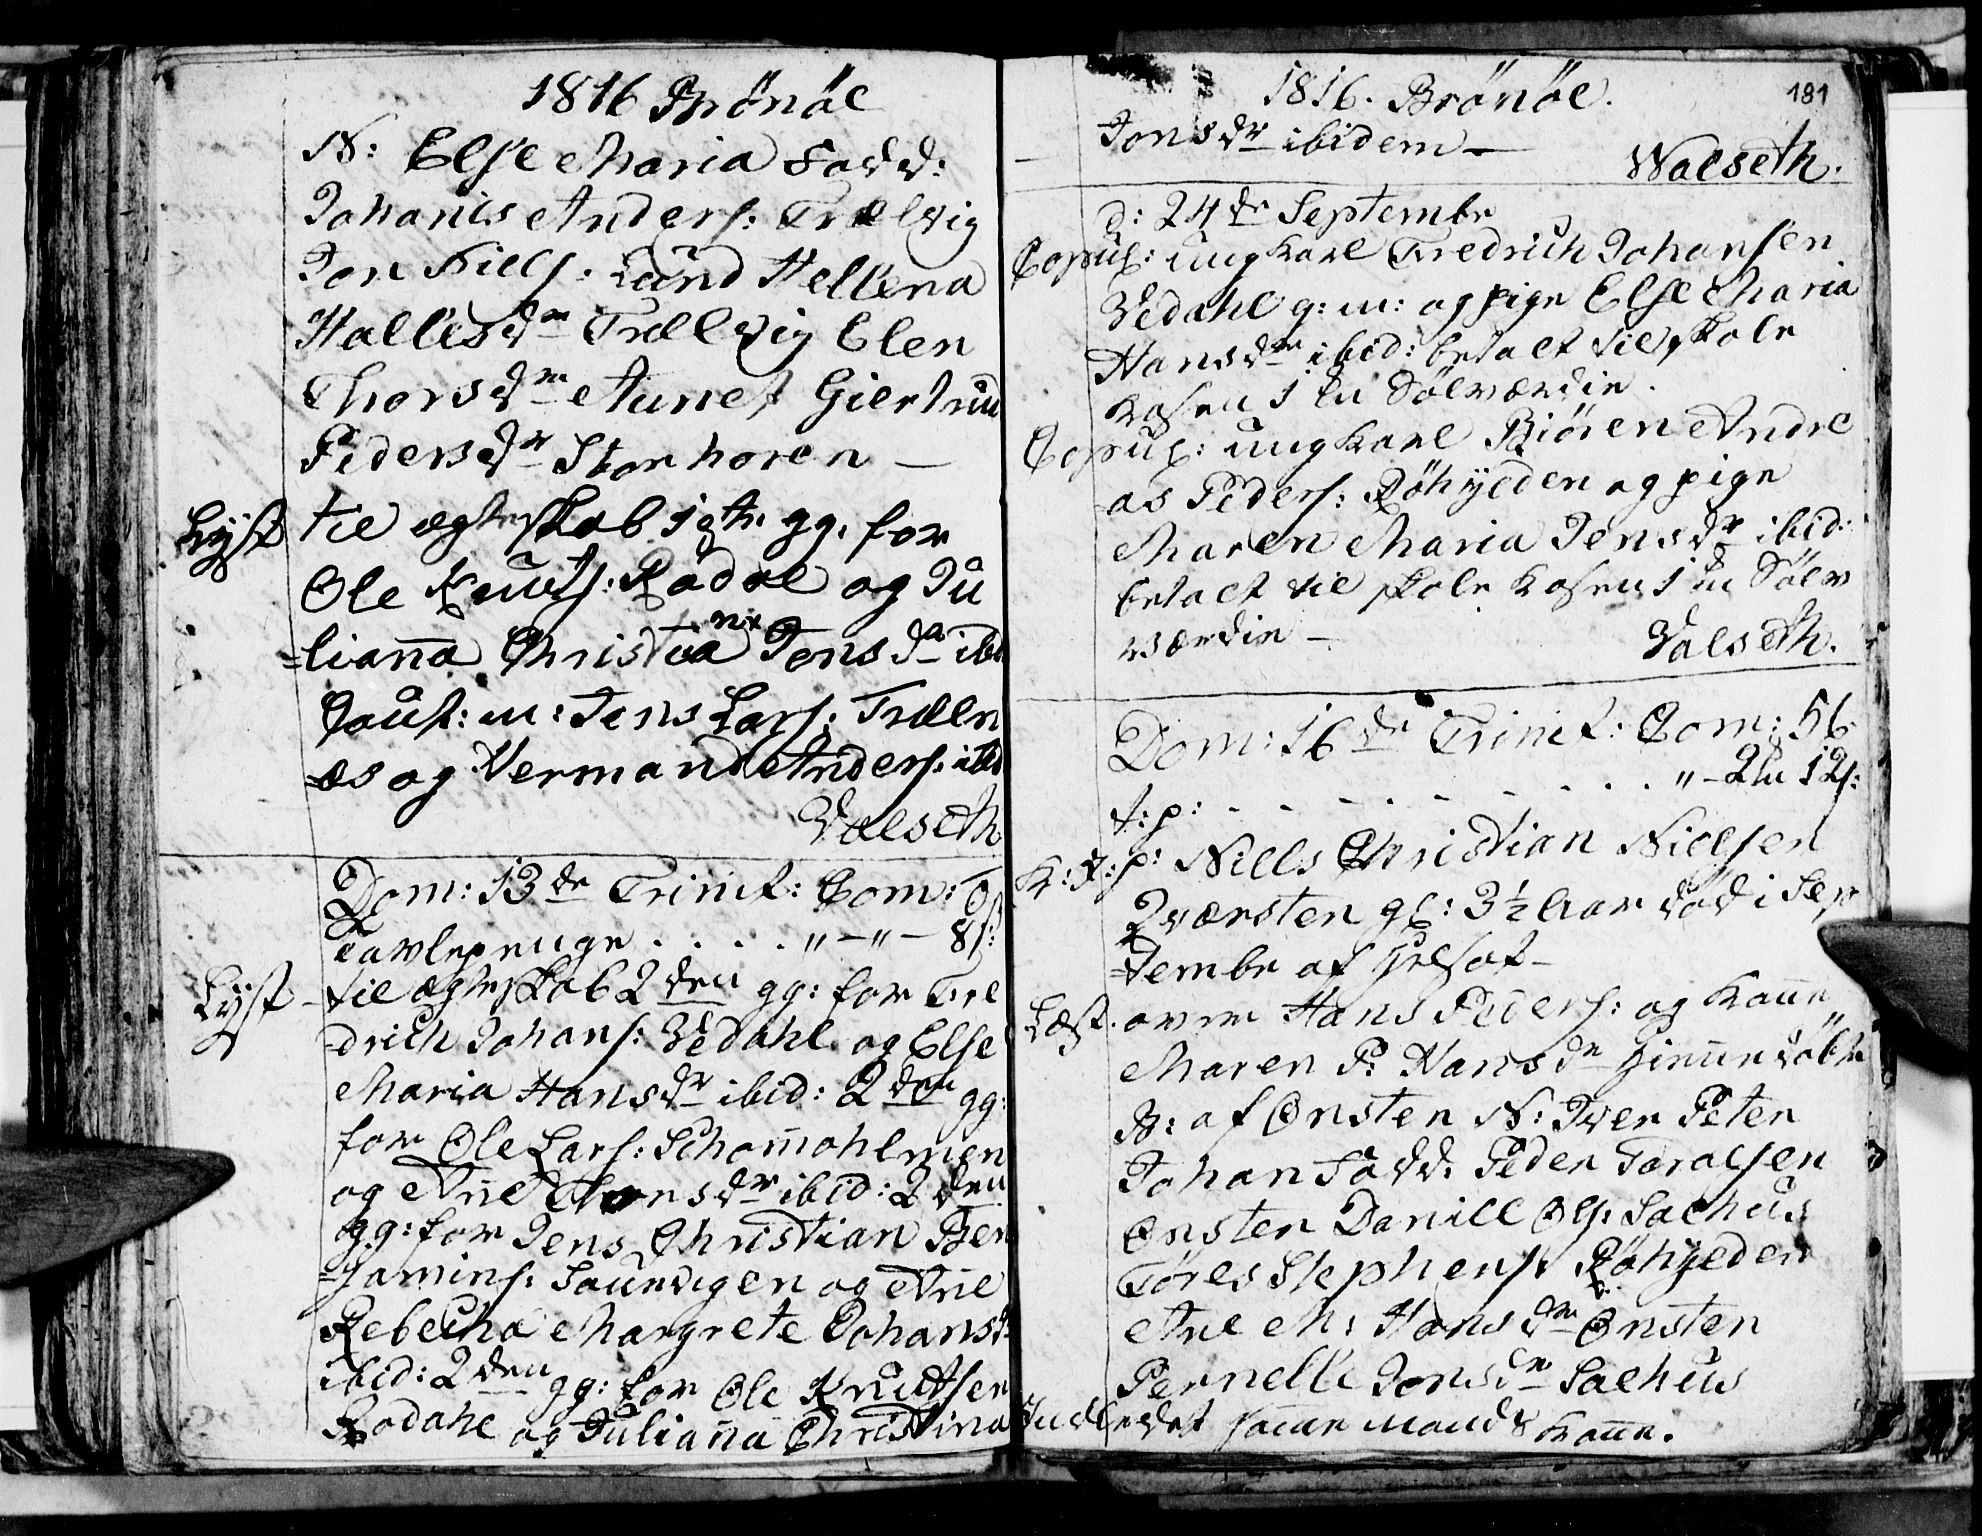 1816 Brönöe
N: Else Maria Fadd:
Johanis Anders: Trælvig
Jon Niels: Lund Hellena
Hallesdr Trælvig Elen
Thorsdr Aunet Giertrud
Pedersdr Storhoren —
Lyst til ægteskab 1ste gg. for
Ole Knuts: Rødal og Ju
=lianna Christina Jensdr ibid
Caut: m: Jens Lars: Træln
æs og Vermand Anders: ibid
Valseth
Dom: 13de Trinit: Com: 0
Tavlepenge . . . . " — " — 8 s:
Lyst — til ægteskab 2den gg: for Fre
drich Johans: Vedahl og Else
Maria Hansdr ibid: 2den gg:
for Ole Lars: Schomohlmen
og Ane Thorsdr ibid: 2den
gg: for Jens Christian Ben
=jamins: Saurvigen og Ane
Rebecha Margrete Johansd:
ibid: 2den gg: for Ole Knudtsen
Rodahl og Julianna Christina
1816. Brönöe. 181
Jonsdr ibidem —
Walseth.
d: 24de Septembr
Copul: ungkarl Fredrich Johansen
Vedahl g: m: og pige Else Maria
Hansdr ibid: betalt til skole
kasen 1 Sølværdie.
Copul: ungkarl Biören Andre
as Peders: Röhyeden og pige
Maren Maria Jensdr ibid:
betalt til skole kasen 1 Sølv
værdie —
Valseth.
Dom: 16de Trinit: Com: 56
t: p: - - - - - - . . . " — 2 12 s:
K: J: p: Niels Christian Nielsen
Qværsten gl: 3½ Aar død i Sep
=tembr af
Læst. over Hans Peders: og Kone
Maren P: Hansdr hiemedøbte
B: af Onsten N: Iver Peter
Johan Fadd: Peder Toralsen
Onsten Daniel Ols: Salhus
Töres Stephens: Röhyeden
Ane M: Hansdr Onsten
Pernelle Jonsdr Salhus
Indledet samme Mands Kone.